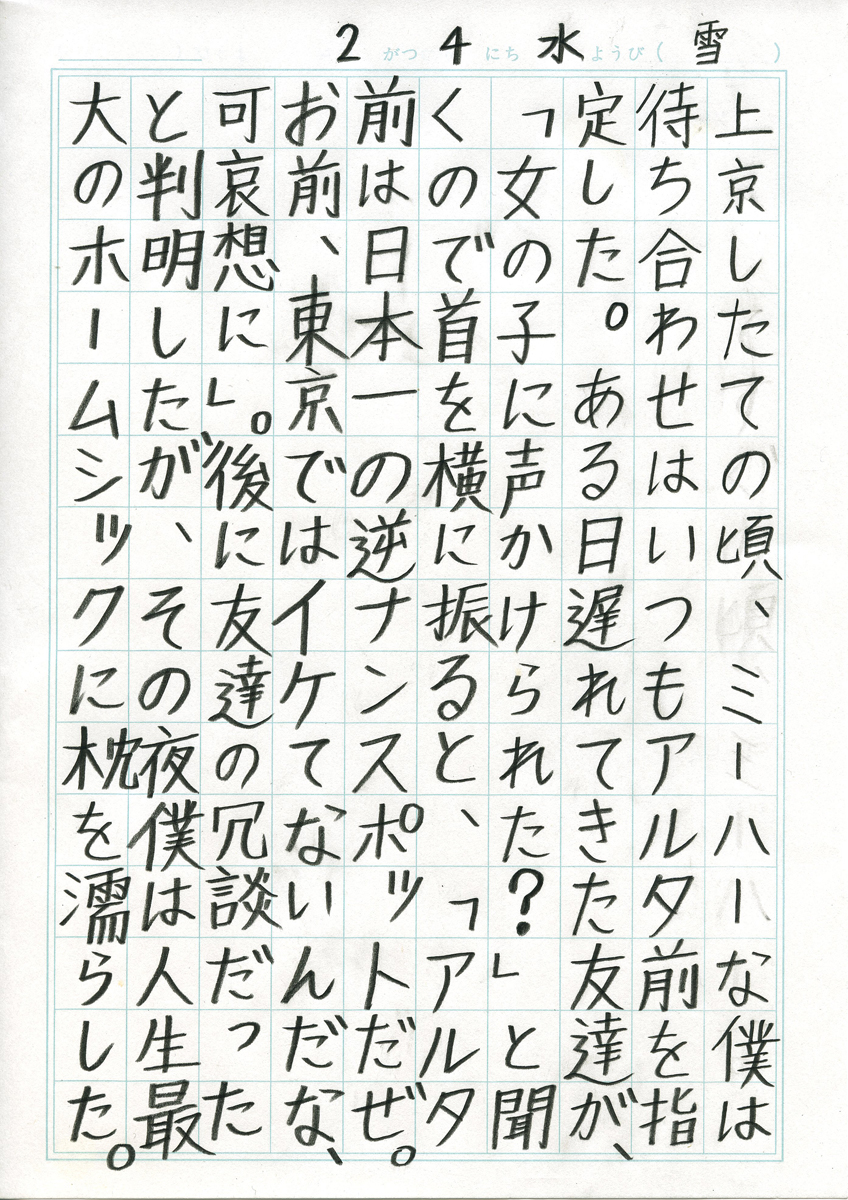 2がつ4にち水ようび(雪)
上京したての頃、ミーハーな僕は
待ち合わせはいつもアルタ前を指
定した。ある日遅れてきた友達が、
「女の子に声かけられた?」と聞
くので首を横に振ると、「アルタ
前は日本一の逆ナンスポットだぜ。
お前、東京ではイケてないんだな、
可哀想に」。後に友達の冗談だった
と判明したが、その夜僕は人生最
大のホームシックに枕を濡らした。